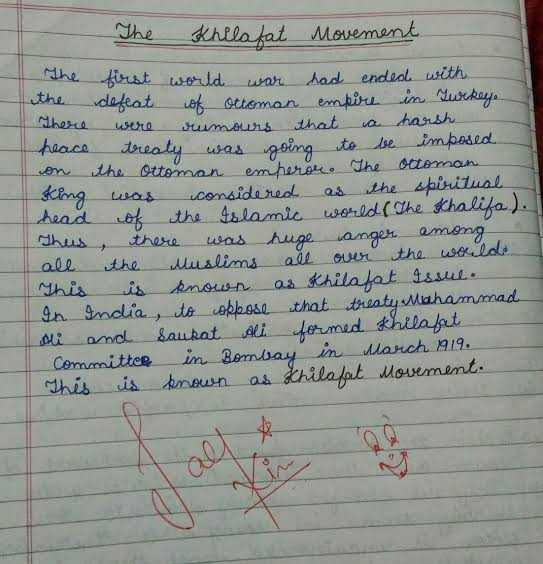 The Khilafat Movement
The first world war had ended with
the defeat of ottoman empire in Turkey.
There were rumours that a harsh
peace treaty was going to be imposed
on the Ottoman emperor. The ottoman
King was considered as the spiritual
head of the Islamic world (The Khalifa).
Thus, there was huge anger among
all the Muslims all over the world.
This is known as Khilafat Issue.
In India, to oppose that treaty Muhammad
Ali and Saukat Ali formed Khilafat
Committee in Bombay in March 1919.
This is known as Khilafat Movement.